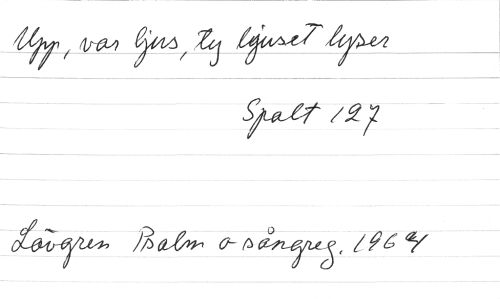 Upp, var ljus, ty ljuset lyser
Spalt 127
Lövgren Psalm o sångreg. 1964